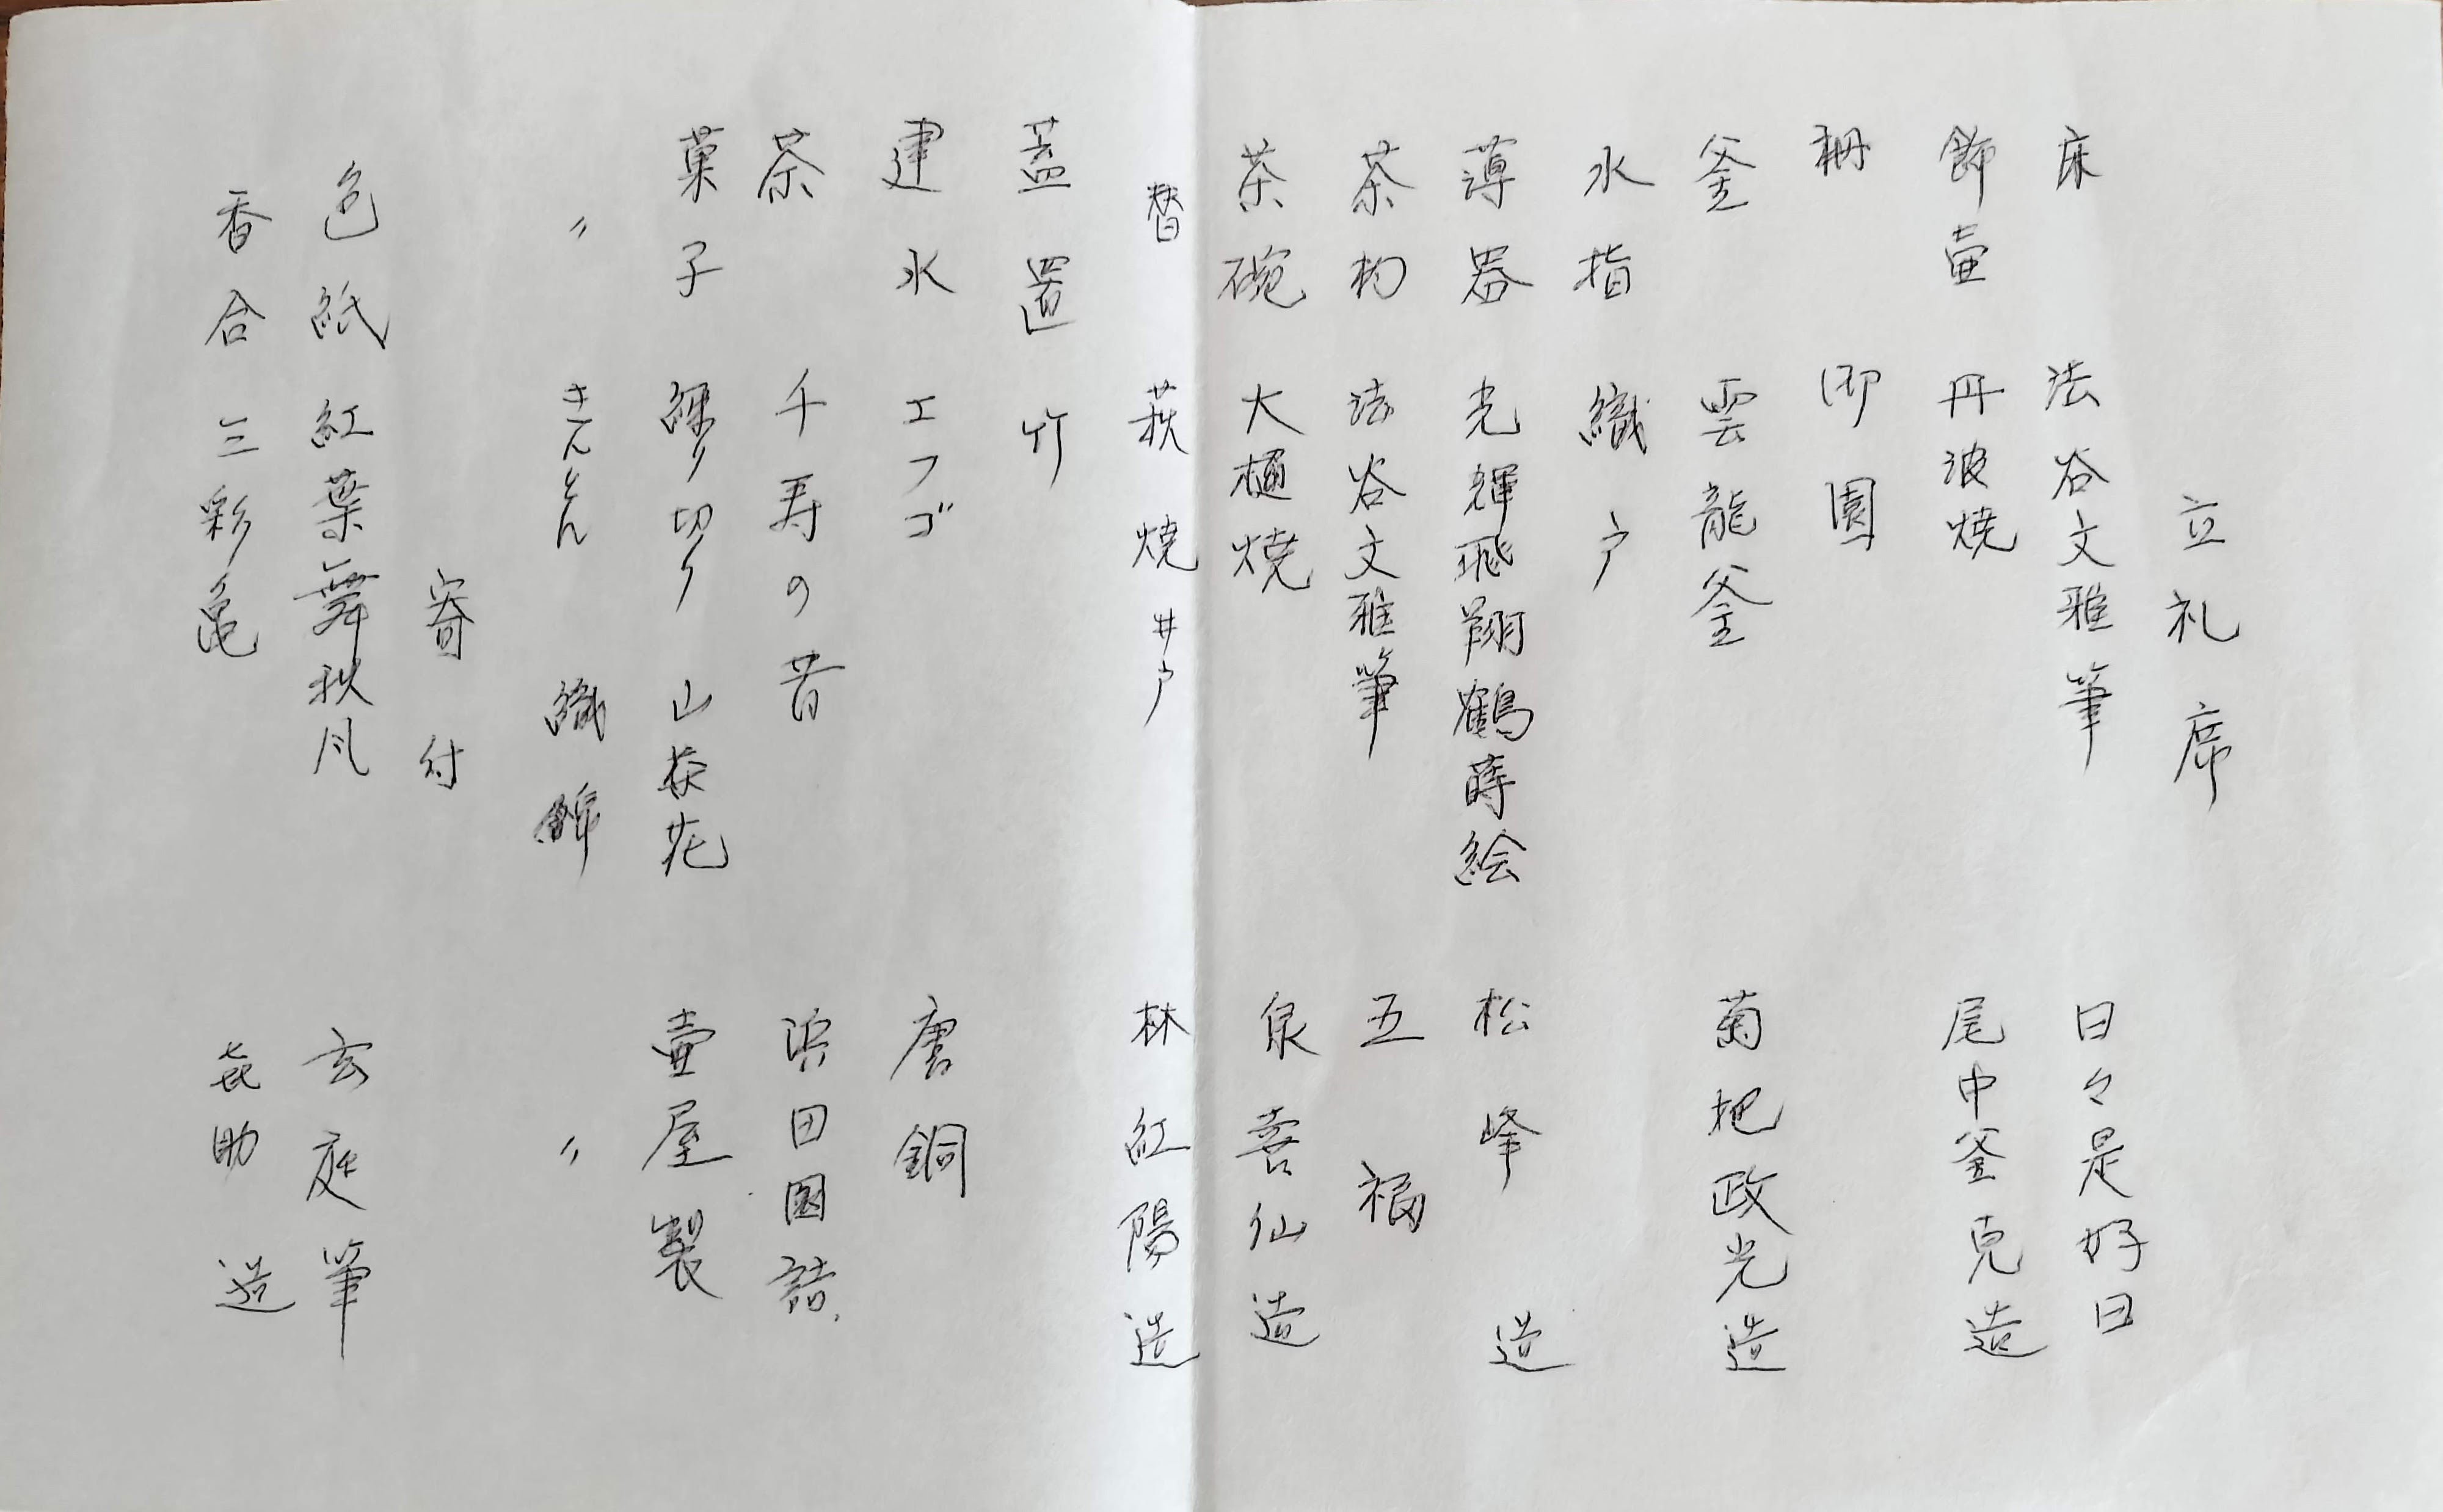 立礼席
床 法谷文雅筆 日々是好日
飾壷 丹波焼 尾中釜克造
棚 御園
釜 雲龍釜 菊地政光造
水指 織戸
薄器 光輝飛翔鶴蒔絵 松峰造
茶杓 法谷文雅筆 五福
茶碗 大樋焼 泉喜仙造
替 萩焼 井戸 林紅陽造
蓋置 竹
建水 エフゴ 唐銅
茶 千寿の昔 浜田園詰
菓子 練り切り 山茶花 壷屋製
〃 きんとん 織錦 〃
寄付
色紙 紅葉舞秋風 玄庭筆
香合 三彩亀 㐂助造